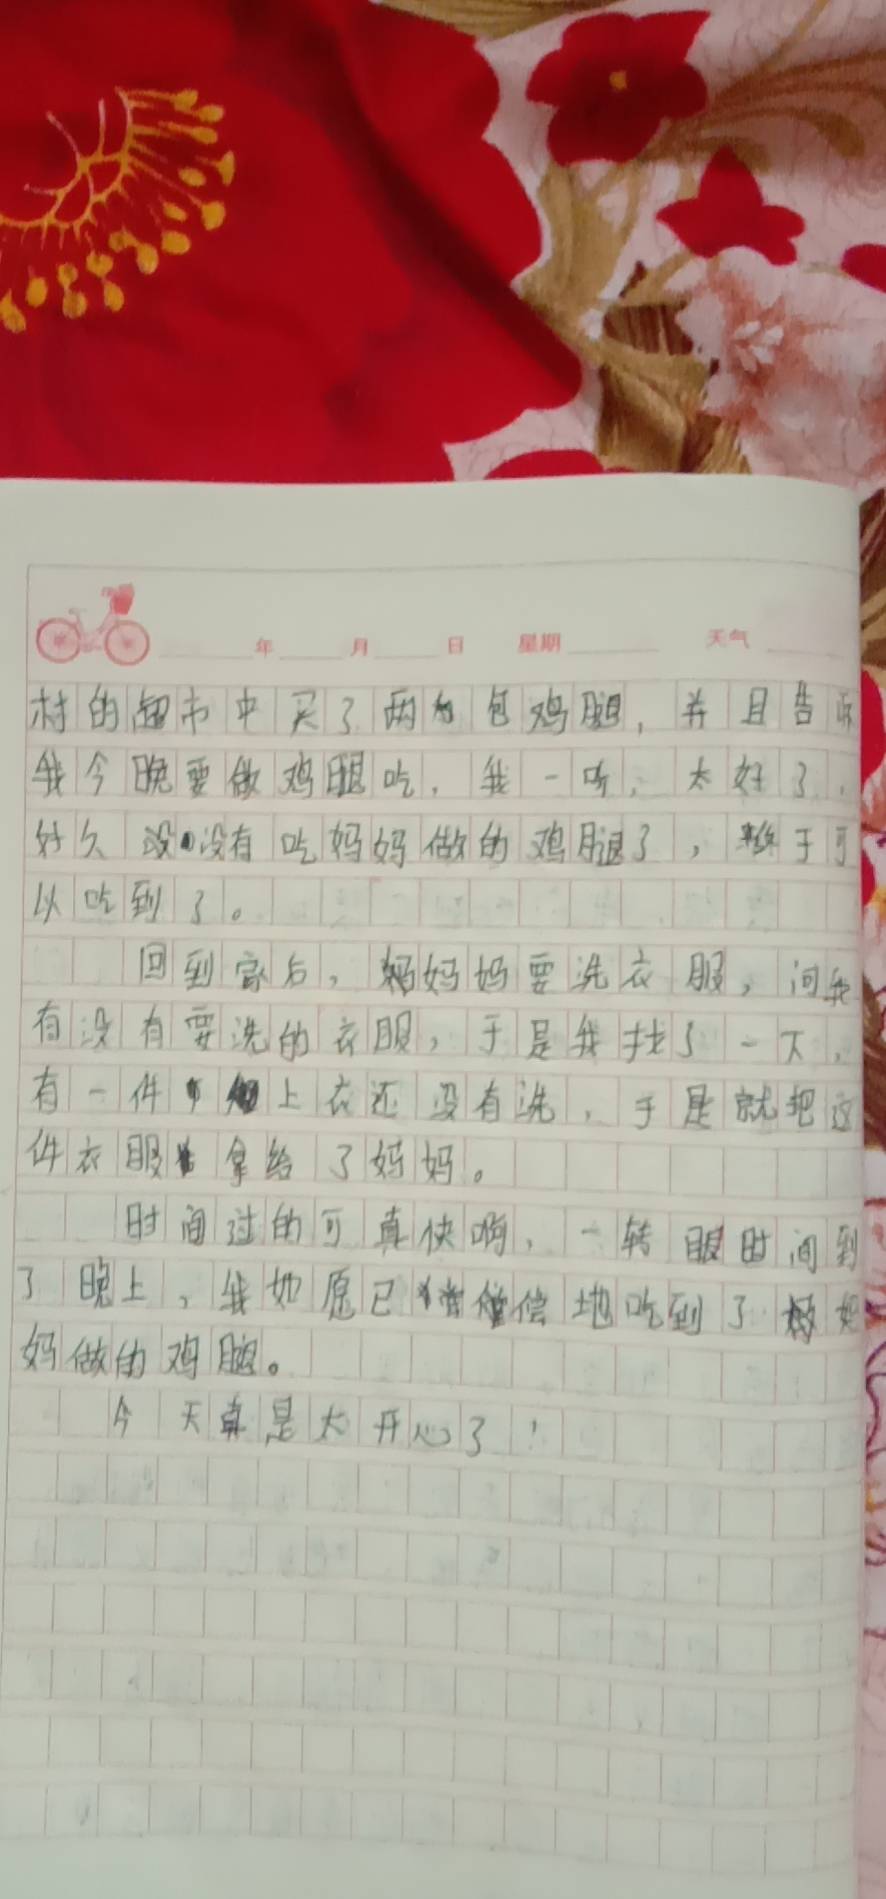 年 月 日 星期 天气
村的超市中买了两包鸡腿，并且告诉
我今晚要做鸡腿吃，我一听，太好了，
好久没没有吃妈妈做的鸡腿了，终于可
以吃到了。
回到家后，妈妈要洗衣服，问我
有没有要洗的衣服，于是我找了一下，
有一件上衣还没有洗，于是就把这
件衣服拿给了妈妈。
时间过的可真快啊，一转眼时间到
了晚上，我如愿已偿地吃到了妈
妈做的鸡腿。
今天真是太开心了！